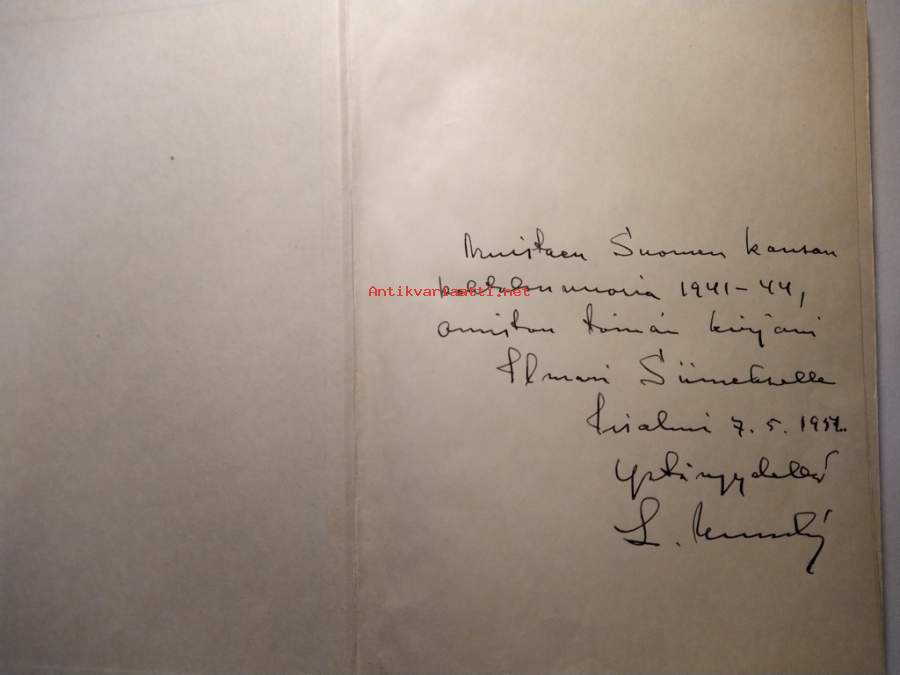 Muistaen Suomen kansan
kohtalonvuosia 1941-44,
Antikvariaatti.net
omistan tämän kirjani
Ilmari Siimekselle
Iisalmi 7. 5. 1957.
Ystävyydellä
L.